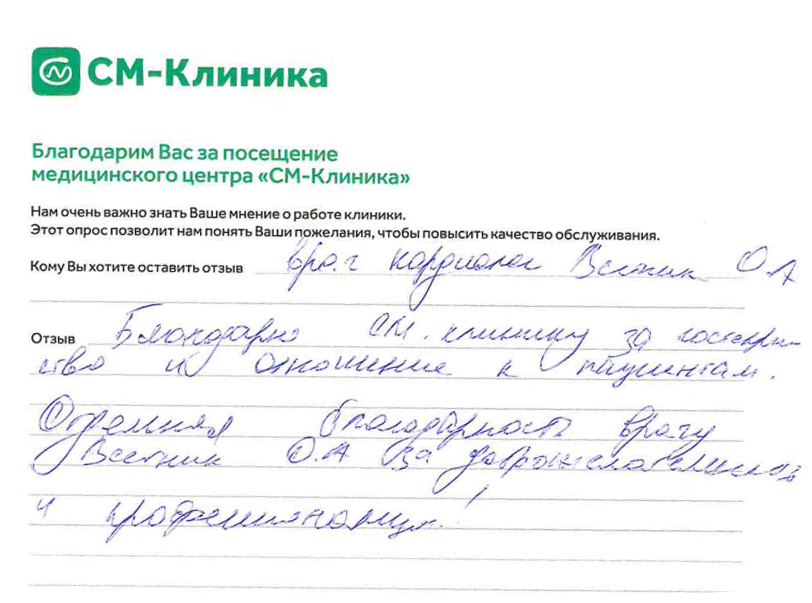 СМ-Клиника
Благодарим Вас за посещение
медицинского центра «СМ-Клиника»
Нам очень важно знать Ваше мнение о работе клиники.
Этот опрос позволит нам понять Ваши пожелания, чтобы повысить качество обслуживания.
Кому Вы хотите оставить отзыв врач кардиолог Вестник О.А
Отзыв Благодарю СМ. клинику за гостеприим-
ство и отношение к пациентам.
Огромная благодарность врачу
Вестник О.А за доброжелательность
и профессионализм!